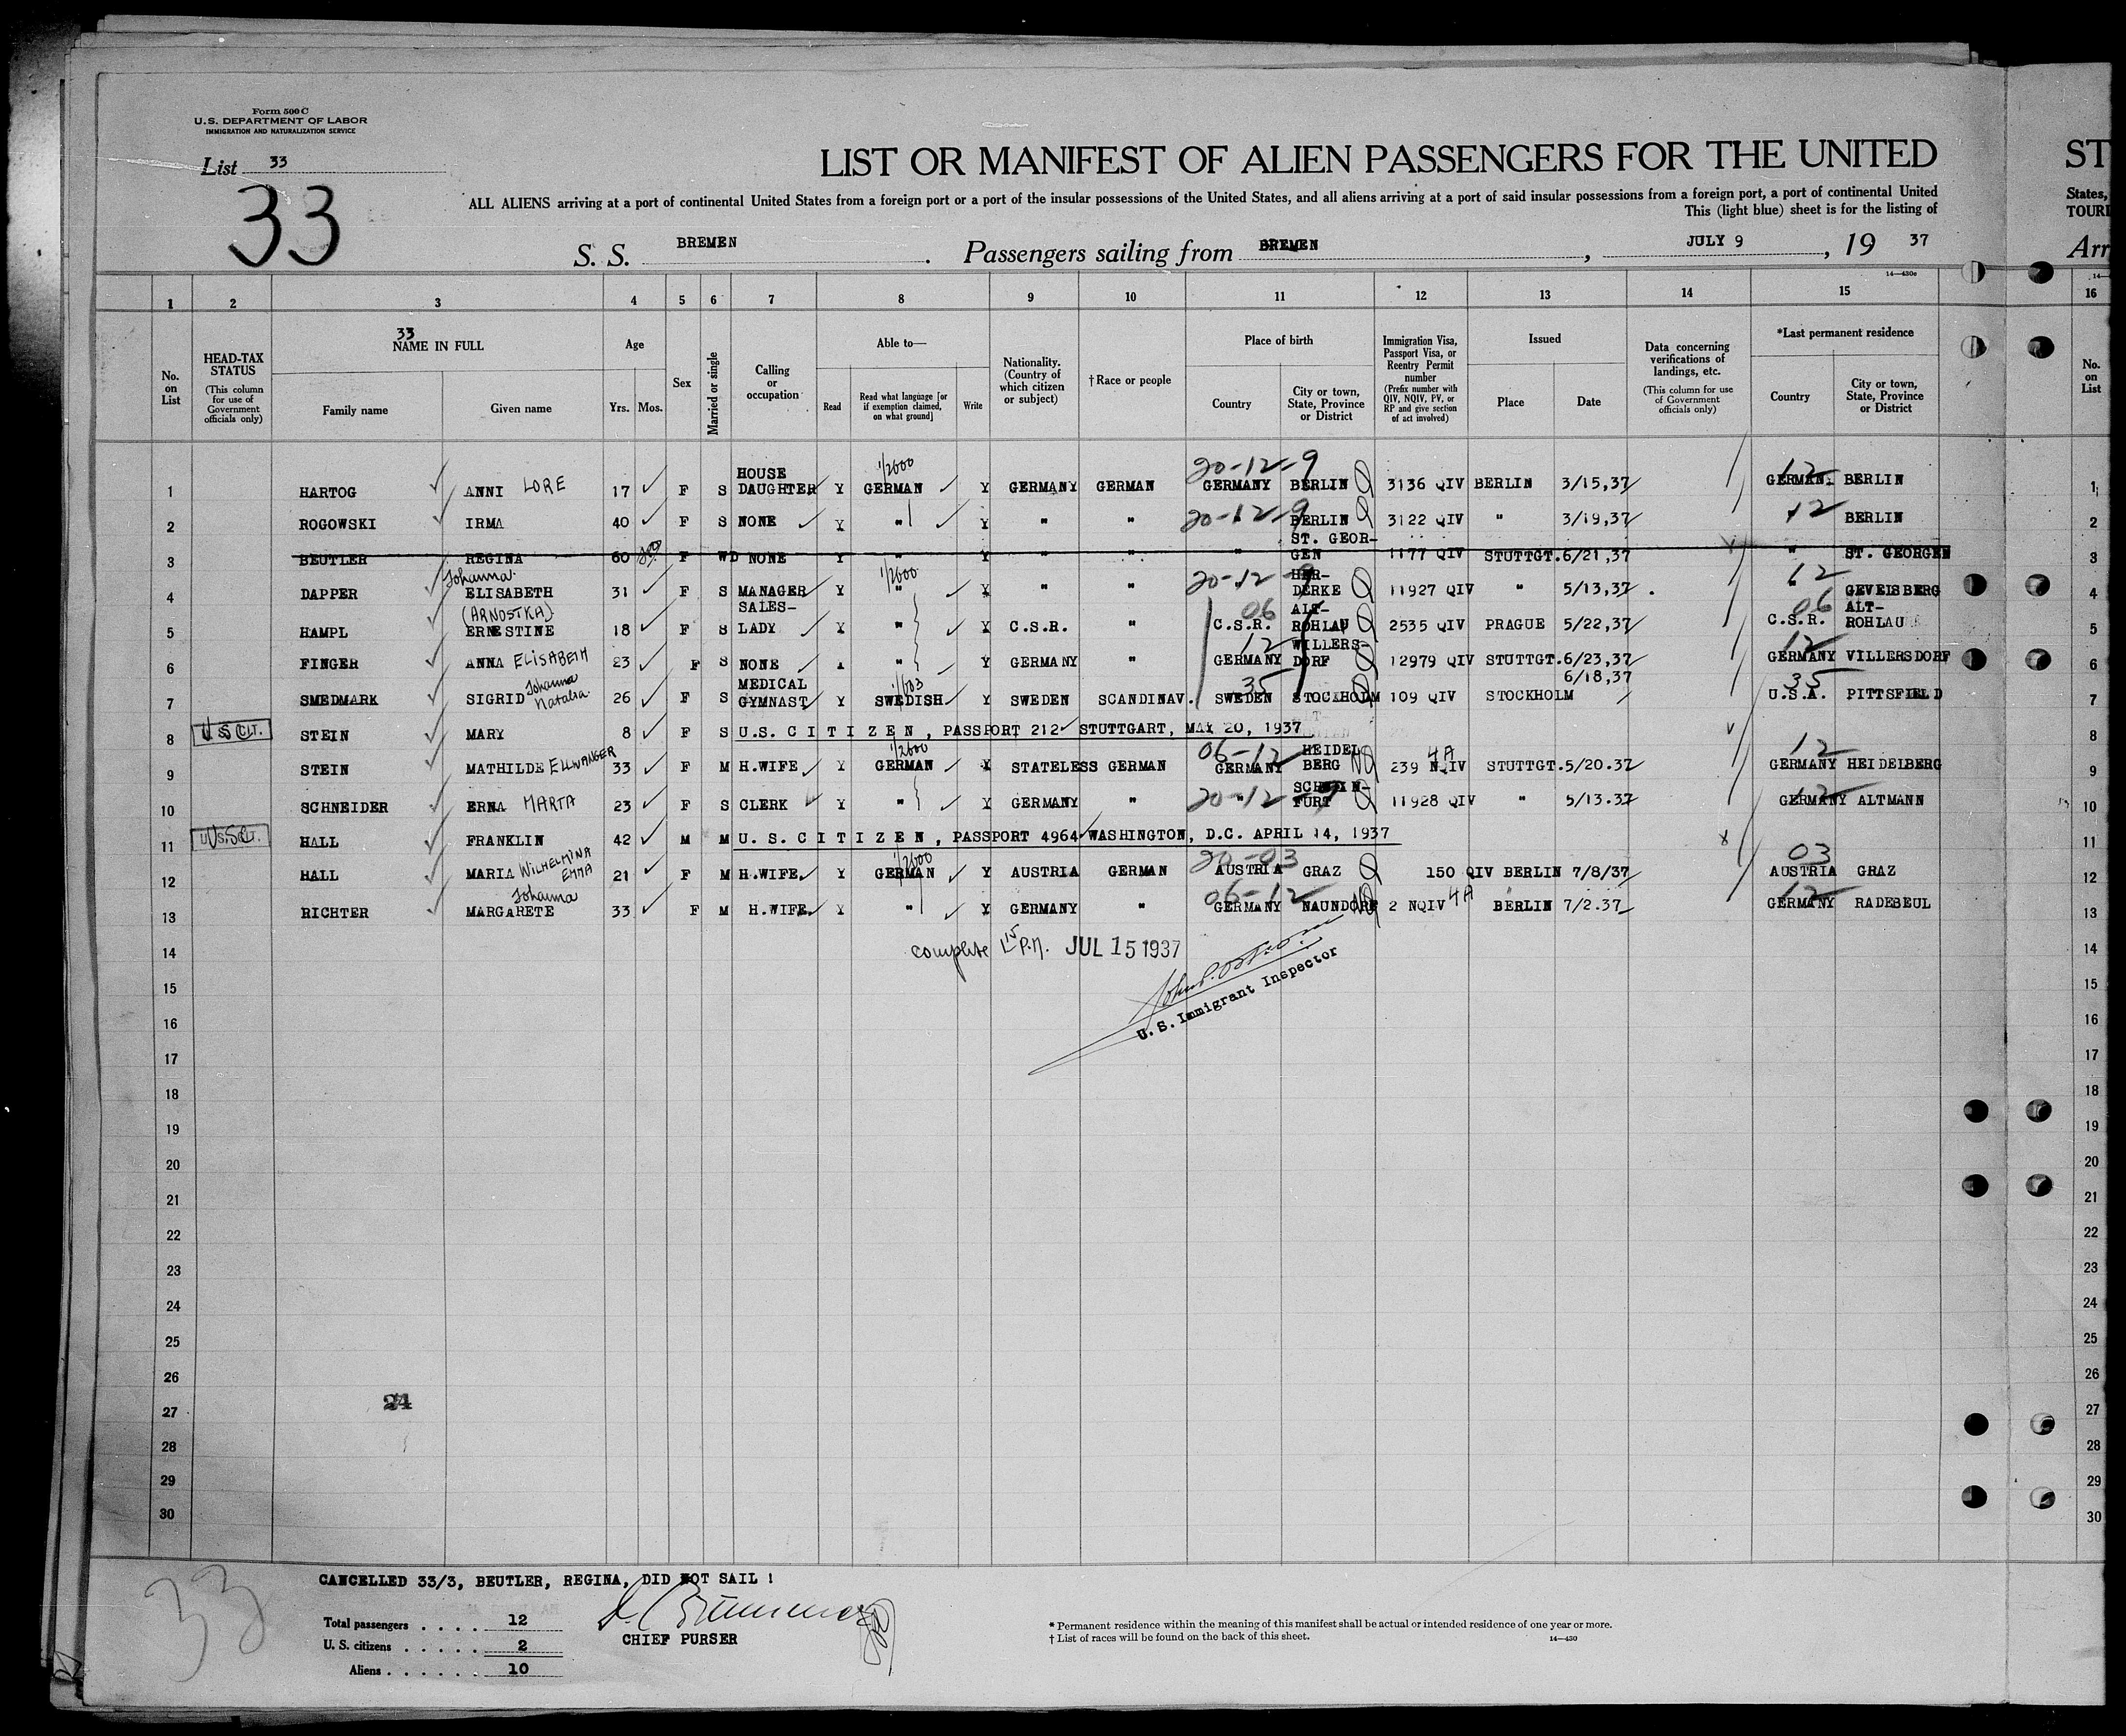 Form 500 C
U.S. DEPARTMENT OF LABOR
IMMIGRATION AND NATURALIZATION SERVICE
List 33
33
LIST OR MANIFEST OF ALIEN PASSENGERS FOR THE UNITED
ST
ALL ALIENS arriving at a port of continental United States from a foreign port or a port of the insular possessions of the United States, and all aliens arriving at a port of said insular possessions from a foreign port, a port of continental United
States,
This (light blue) sheet is for the listing of
TOURI
S. S. BREMEN . Passengers sailing from BREMEN , JULY 9 , 19 37
Arr
14—430c
1 2 3 4 5 6 7 8 9 10 11 12 13 14 15 16
No. on List
HEAD-TAX STATUS (This column for use of Government officials only)
33
NAME IN FULL
Family name Given name
Age
Yrs. Mos.
Sex
Married or single
Calling or occupation
Able to—
Read
Read what language [or if exemption claimed, on what ground]
Write
Nationality. (Country of which citizen or subject)
†Race or people
Place of birth
Country
City or town, State, Province or District
Immigration Visa, Passport Visa, or Reentry Permit number (Prefix number with QIV, NQIV, PV, or RP and give section of act involved)
Issued
Place Date
Data concerning verifications of landings, etc. (This column for use of Government officials only)
*Last permanent residence
Country
City or town, State, Province or District
No. on List
1 HARTOG ANNI LORE 17 F S HOUSE DAUGHTER Y 1/2600 GERMAN Y GERMANY GERMAN 20-12-9 GERMANY BERLIN 3136 QIV BERLIN 3/15,37 12 GERMAN. BERLIN 1
2 ROGOWSKI IRMA 40 F S NONE Y " Y " " 20-12-9 BERLIN 3122 QIV " 3/19,37 12 BERLIN 2
3 BEUTLER REGINA 60 F WD NONE Y " Y " " " ST. GEOR-GEN 1177 QIV STUTTGT. 6/21,37 " ST. GEORGEN 3
4 DAPPER Johanna ELISABETH 31 F S MANAGER Y 1/2600 " Y " " 20-12-9 HER-DERKE 11927 QIV " 5/13,37 12 " GEVEISBERG 4
5 HAMPL (ARNOSTKA) ERNESTINE 18 F S SALES-LADY Y " Y C.S.R. " 06 C.S.R. ALT-ROHLAU 2535 QIV PRAGUE 5/22,37 06 C.S.R. ALT-ROHLAU 5
6 FINGER ANNA ELISABETH 23 F S NONE " Y GERMANY " 12 GERMANY WILLERS-DORF 12979 QIV STUTTGT. 6/23,37 12 GERMANY VILLERSDORF 6
7 SMEDMARK SIGRID Johanna Natalia 26 F S MEDICAL GYMNAST Y SWEDISH Y SWEDEN SCANDINAV. 35 SWEDEN STOCKHOLM 109 QIV STOCKHOLM 6/18,37 35 U.S.A. PITTSFIELD 7
8 U S CIT. STEIN MARY 8 F S U.S. CITIZEN, PASSPORT 212 STUTTGART, MAY 20, 1937 8
9 STEIN MATHILDE ELLWANGER 33 F M H.WIFE Y 1/2600 GERMAN Y STATELESS GERMAN 06-12 GERMANY HEIDELBERG NQ 239 NQIV 4A STUTTGT. 5/20.37 12 GERMANY HEIDELBERG 9
10 SCHNEIDER ERNA MARTA 23 F S CLERK Y " Y GERMANY " 20-12-9 " SCHWEIN-FURT 11928 QIV " 5/13.37 12 GERMANY ALTMANN 10
11 U.S. CIT. HALL FRANKLIN 42 M M U. S. CITIZEN, PASSPORT 4964 WASHINGTON, D.C. APRIL 14, 1937 11
12 HALL MARIA WILHELMINA EMMA 21 F M H.WIFE Y 1/2600 GERMAN Y AUSTRIA GERMAN 20-03 AUSTRIA GRAZ 150 QIV BERLIN 7/8/37 03 AUSTRIA GRAZ 12
13 RICHTER Johanna MARGARETE 33 F M H.WIFE Y " Y GERMANY " 06-12 GERMANY NAUNDORF NQ 2 NQIV 4A BERLIN 7/2.37 12 GERMANY RADEBEUL 13
14 complete P.M. JUL 15 1937 14
15 15
16 U. S. Immigrant Inspector 16
17 17
18 18
19 19
20 20
21 21
22 22
23 23
24 24
25 25
26 26
27 24 27
28 28
29 29
30 30
33
CANCELLED 33/3, BEUTLER, REGINA, DID NOT SAIL !
Total passengers . . . . 12
U. S. citizens . . . . . 2
Aliens . . . . . . 10
CHIEF PURSER
* Permanent residence within the meaning of this manifest shall be actual or intended residence of one year or more.
† List of races will be found on the back of this sheet.
14—430